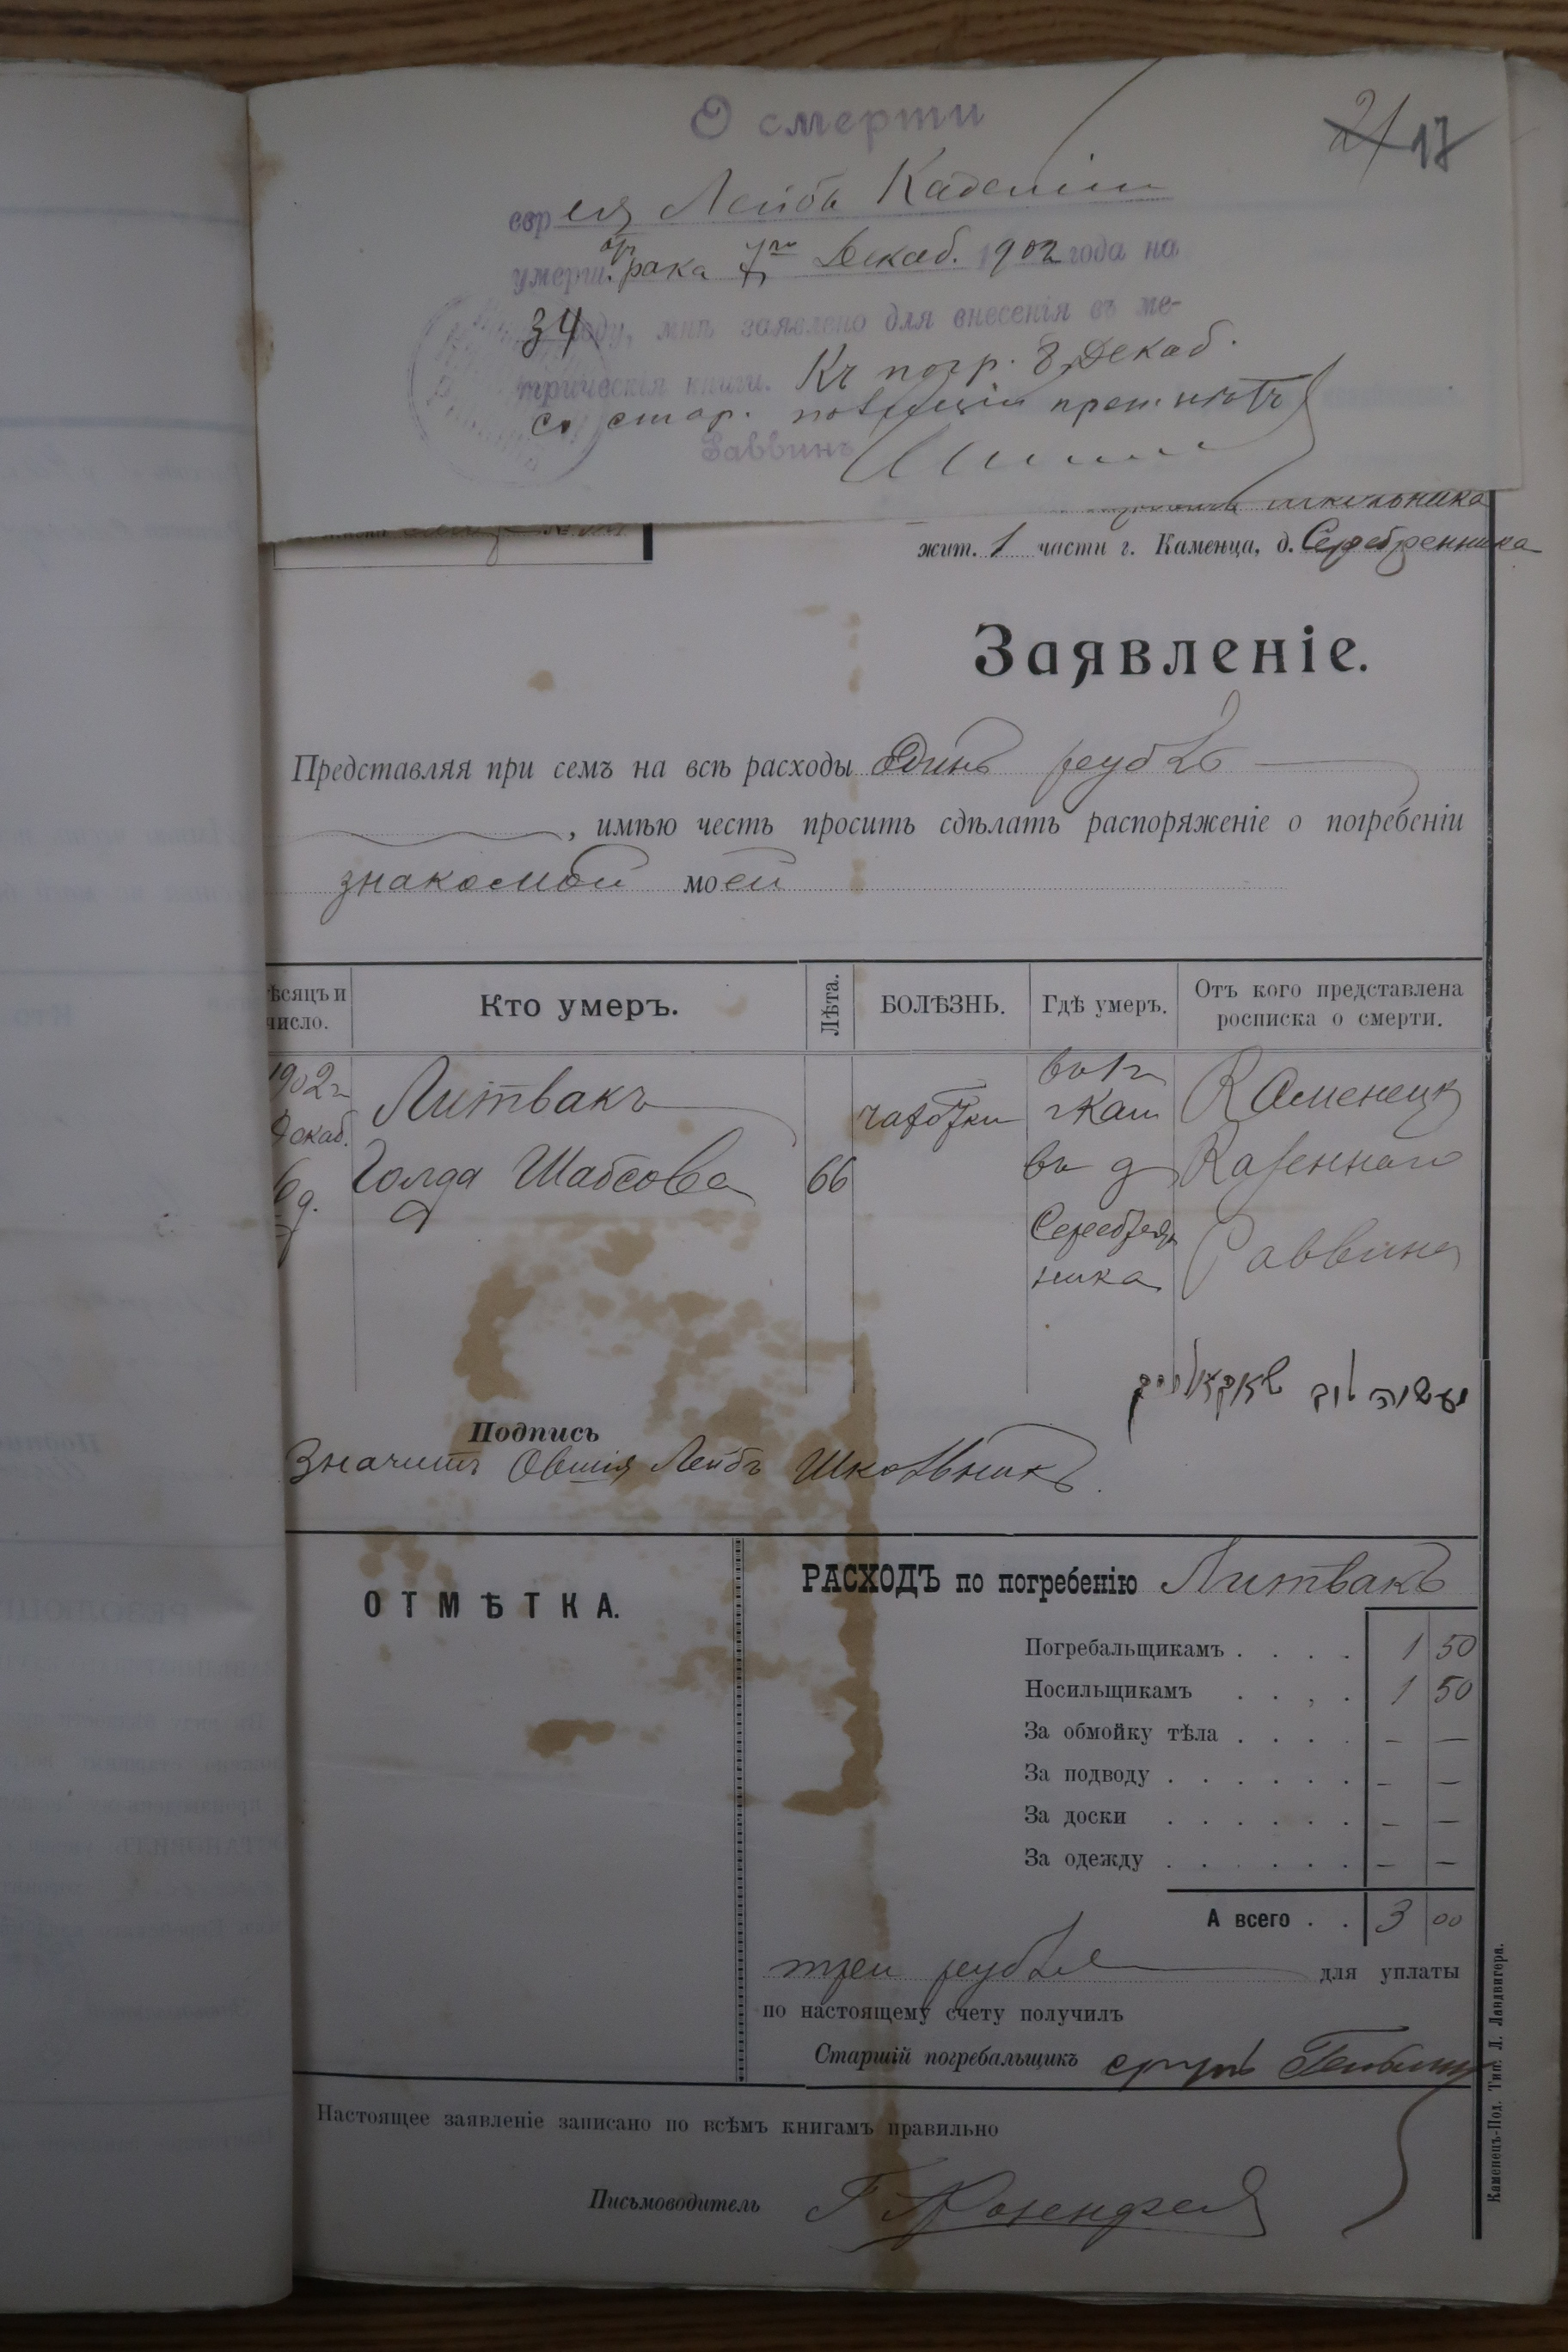 О смерти
21 17
еврея Лейбъ
умерш. от рака 7го Декаб. 1902 года на
34 году, мнѣ заявлено для внесенія въ ме-
трическія книги. Къ погр. 8 Декаб.
со стор. полиціи преп. нѣтъ
Раввинъ
школьника
жит. 1 части г. Каменца, д. Серебренника
Заявленіе.
Представляя при семъ на всѣ расходы Одинъ рубль
, имѣю честь просить сдѣлать распоряженіе о погребеніи
знакомой моей
ѣсяцъ и число.
Кто умеръ.
Лѣта.
БОЛѢЗНЬ.
Гдѣ умеръ.
Отъ кого представлена росписка о смерти.
1902 г
Декаб.
6 д.
Литвакъ
Голда Шабсова
66
чахотки
въ 1 ч
г Кам
въ д
Серебрен
ника
Каменецк
Казеннаго
Раввина
Подпись
Значитъ Овшія Лейбъ Школьникъ.
ОТМѢТКА.
РАСХОДЪ по погребенію Литвакъ
Погребальщикамъ . . . . 1 50
Носильщикамъ . . , . 1 50
За обмойку тѣла . . . . – —
За подводу . . . . . . – —
За доски . . . . . . – —
За одежду . . . . . . – —
А всего . . 3 00
три рубля для уплаты
по настоящему счету получилъ
Старшій погребальщикъ
Настоящее заявленіе записано по всѣмъ книгамъ правильно
Письмоводитель Г Розенфельд
Каменецъ-Под. Тип. Л. Ландвигера.